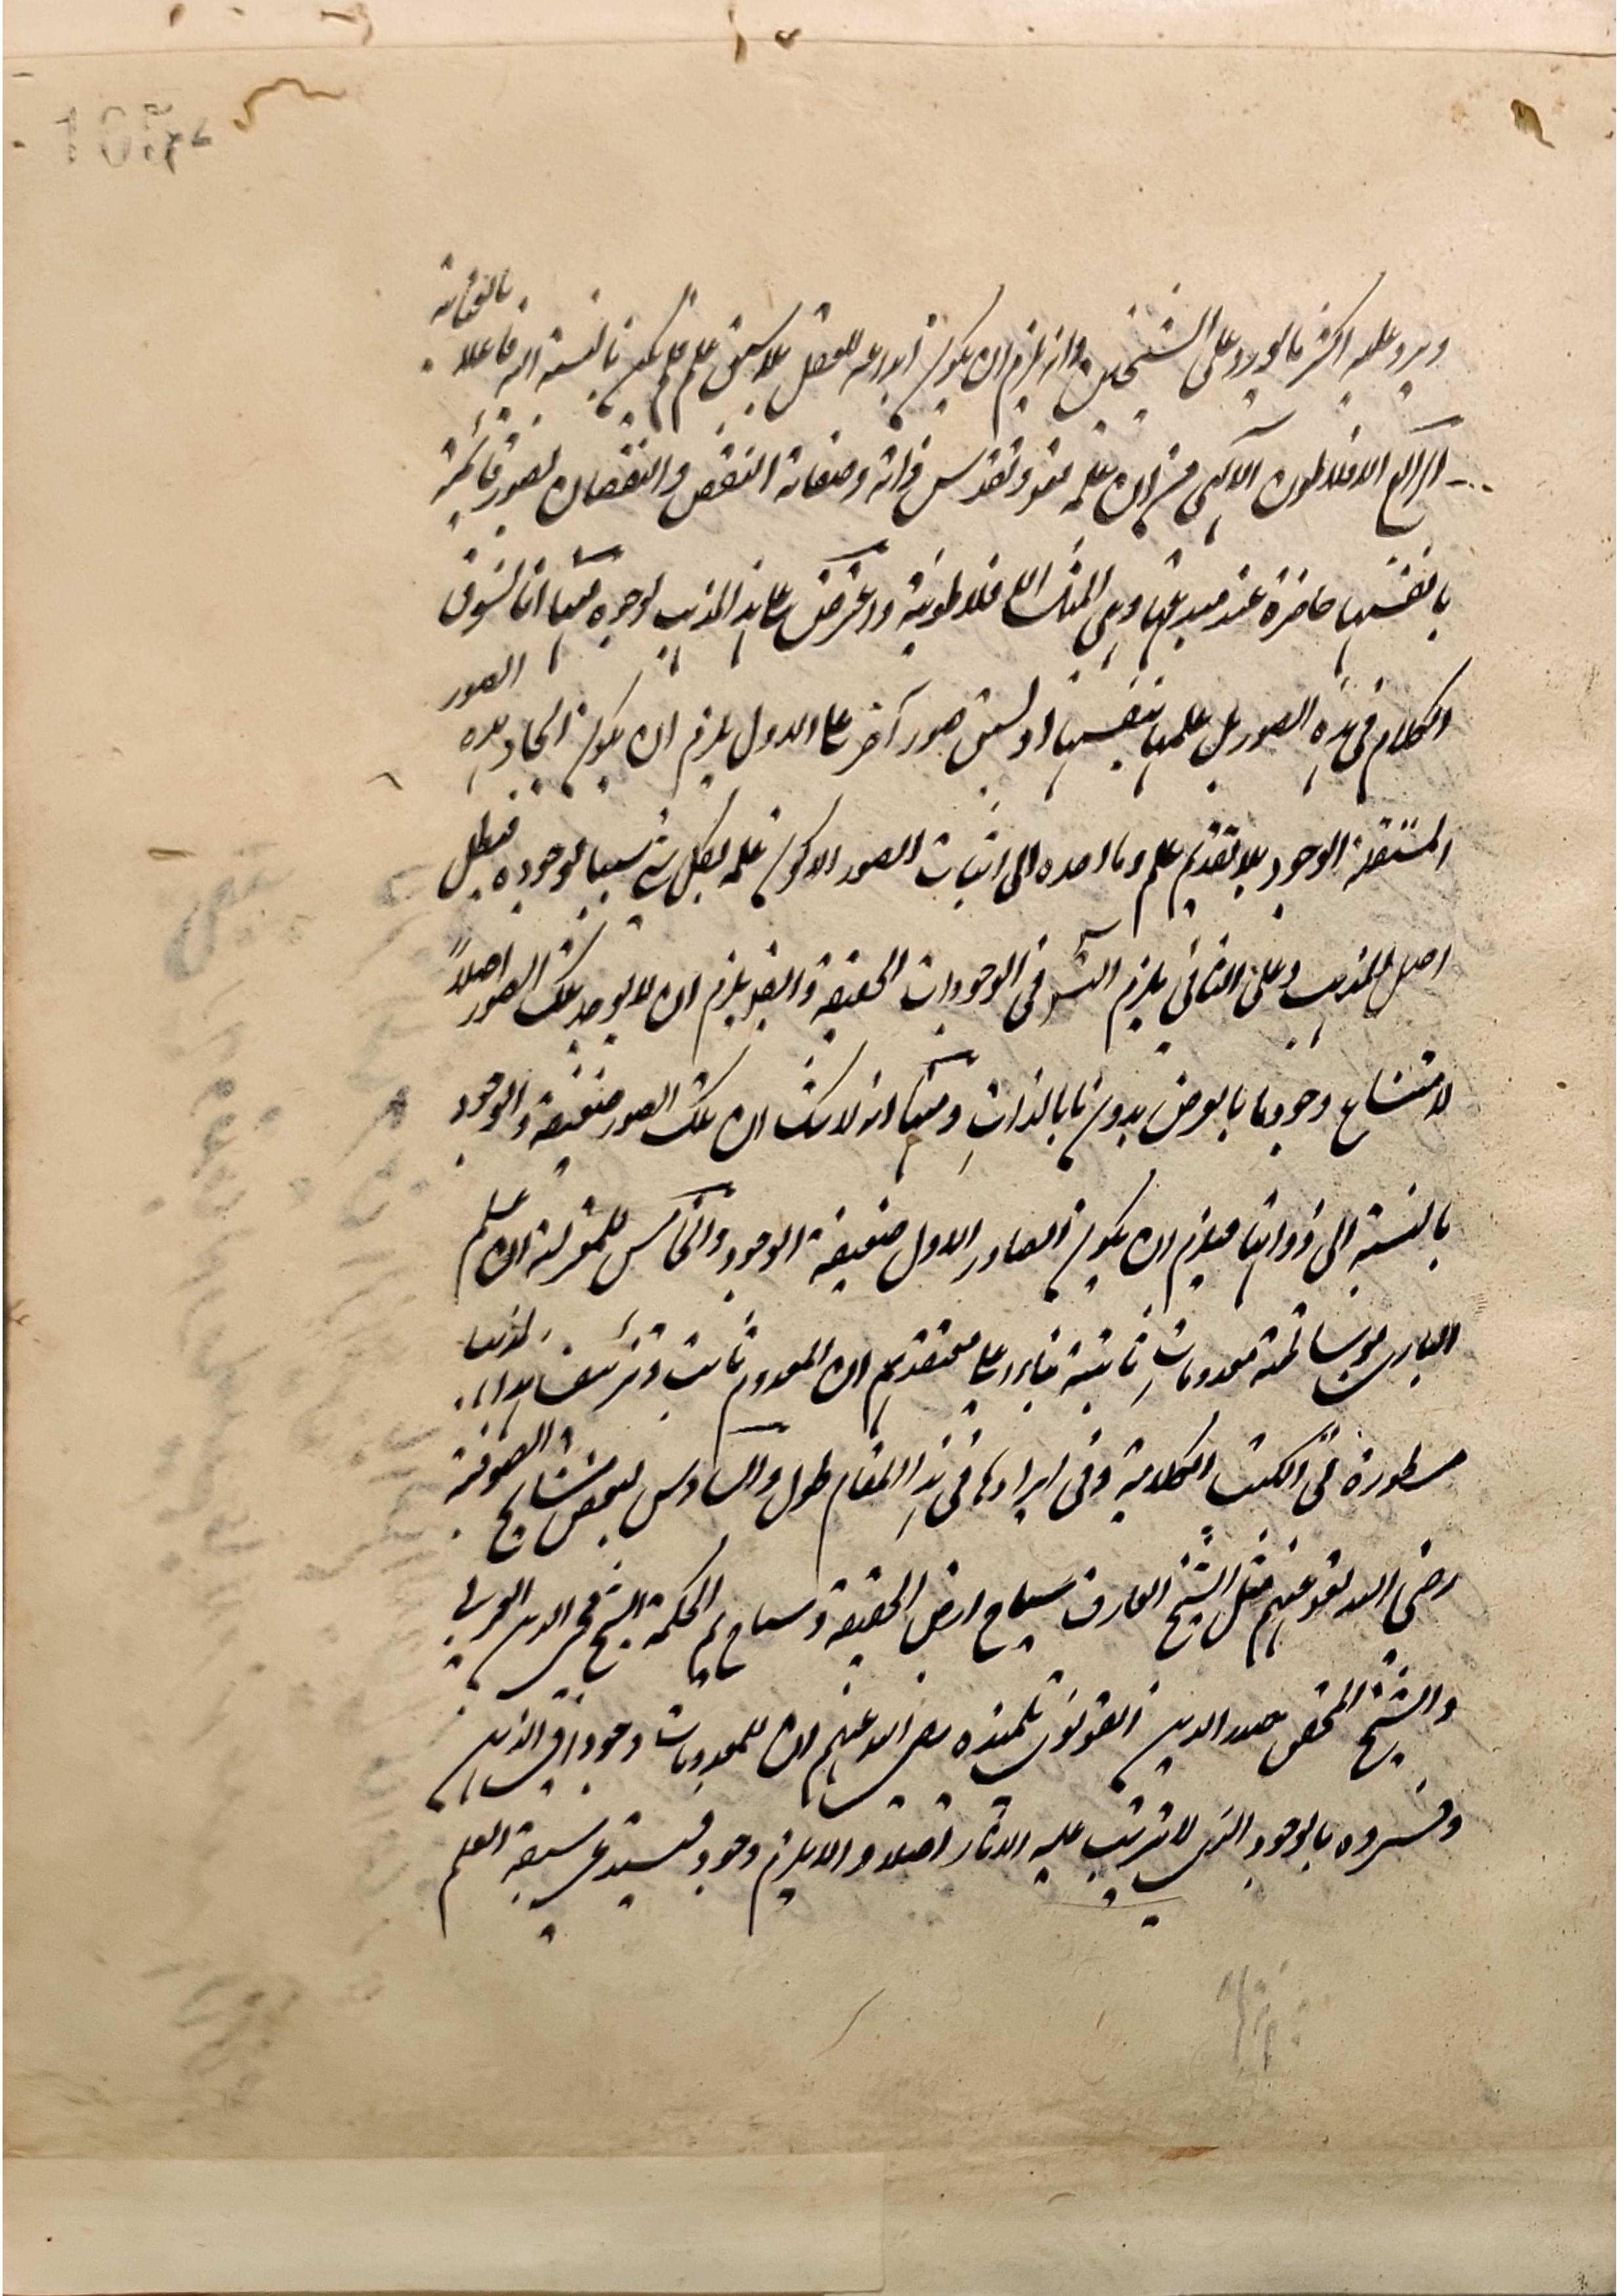 ويرد عليه اكثر ما يورد على الشيخين وانه يلزم ان يكون ابداعه للعقل بلا سبق علم فلم يكن بالنسبة اليه فاعلا بالعناية
الرابع لافلاطون الآلهي من ان علمه تعو وتقدس ذاته وصفاته النقص والنقصان بصور قائمة
بانفسها حاضرة عند مبدعها وهي المثل الافلاطونية واعترض على هذا المذهب لوجوه منها انا نسوق
الكلام في هذه الصور هل علمها بنفسها او بسبق صور آخر على الاول يلزم ان يكون ايجاد هذه الصور
المستقلة الوجود بلا تقدم علم وما احده الى اثبات الصور الا كون علمه بكل شئ سببا لوجوده فبطل
اصل المذهب وعلى الثاني يلزم التس في الوجودات الحقيقة وايضو يلزم ان لا يوجد تلك الصور اصلاً
لامتناع وجود ما بالعرض بدون ما بالذات ومنها انه لا شك ان تلك الصور ضعيفة الوجود
بالنسبة الى ذواتها فيلزم ان يكون الصادر الاول ضعيفة الوجود والخامس للمعتزلة ان علم
الباري بوساطة معدومات ثابتة بناء على معتقدهم ان المعدوم ثابت وتزئيف هذا المذهب
مسطورة في الكتب الكلامية وفي ايرادها في هذا المقام طول والسادس لبعض مشايخ الصوفية
رضي الله تعو عنهم مثل الشيخ العارف سياح ارض الحقيقة وسباح يم الحكمة الشيخ محي الدين العربي
والشيخ المحقق صدر الدين القونوي تلميذه رضي الله عنهم ان للمعدومات وجودا في الذهن
وفسروه بالوجود الذي لا يترتب عليه الاثار اصلا والا يلزم وجود فيستدعي سبقه العلم